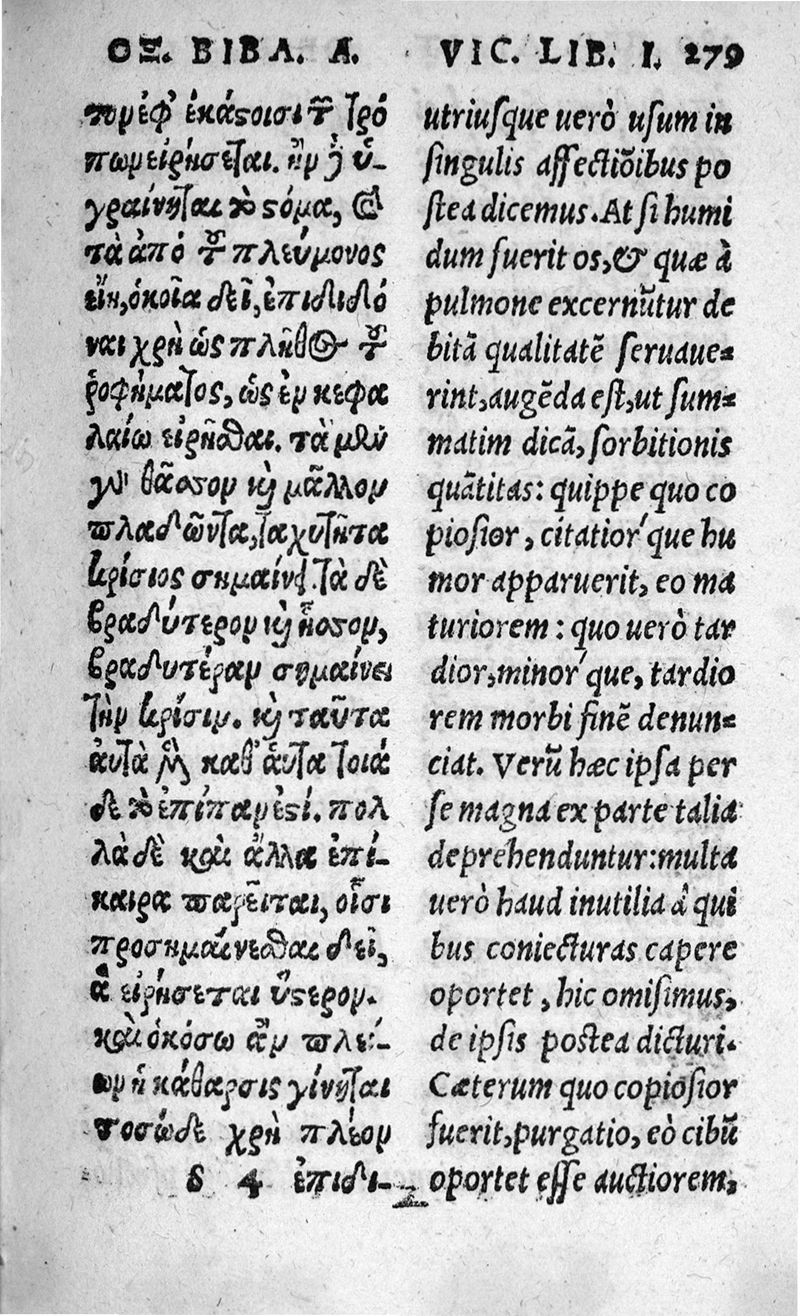 ΟΞ. ΒΙΒΛ. Α.
πυρ ἐφ' ἑκάστοισι τῶν τρό
πων εἰρήσεται. ἢν δὲ ὑ-
γραίνηται τὸ στόμα, καὶ
τὰ ἀπὸ τοῦ πλεύμονος
εἴη, ὁκοῖα δεῖ, ἐπιδιδό
ναι χρὴ ὡς πλῆθος τοῦ
ῥοφήματος, ὡς ἐν κεφα
λαίῳ εἰρῆσθαι. τὰ μὲν
γὰρ θᾶσσον καὶ μᾶλλον
πλαδῶντα, ταχυτῆτα
κρίσιος σημαίνει. τὰ δὲ
βραδύτερον καὶ ἧσσον,
βραδυτέραν σημαίνει
τὴν κρίσιν. καὶ ταῦτα
αὐτὰ μὲν καθ' αὑτὰ τοιά
δε τὸ ἐπίπαν ἐστί. πολ
λὰ δὲ καὶ ἄλλα ἐπί-
καιρα παρεῖται, οἷσι
προσημαίνεσθαι δεῖ,
ἃ εἰρήσεται ὕστερον.
καὶ ὁκόσῳ ἂν πλεί-
ων ἡ κάθαρσις γίνηται
τοσῷδε χρὴ πλέον
S 4 ἐπιδι-
VIC. LIB. I. 279
utriusque uerò usum in
singulis affectiõibus po
stea dicemus. At si humi
dum fuerit os, & quæ à
pulmone excernũtur de
bitã qualitatẽ seruaue-
rint, augẽda est, ut sum-
matim dicã, sorbitionis
quãtitas: quippe quo co
piosior, citatior'que hu
mor apparuerit, eo ma
turiorem: quo uerò tar
dior, minor'que, tardio
rem morbi finẽ denun-
ciat. Verũ hæc ipsa per
se magna ex parte talia
deprehenduntur: multa
uerò haud inutilia à qui
bus coniecturas capere
oportet, hic omisimus,
de ipsis postea dicturi.
Cæterum quo copiosior
fuerit, purgatio, eò cibũ
oportet esse auctiorem,